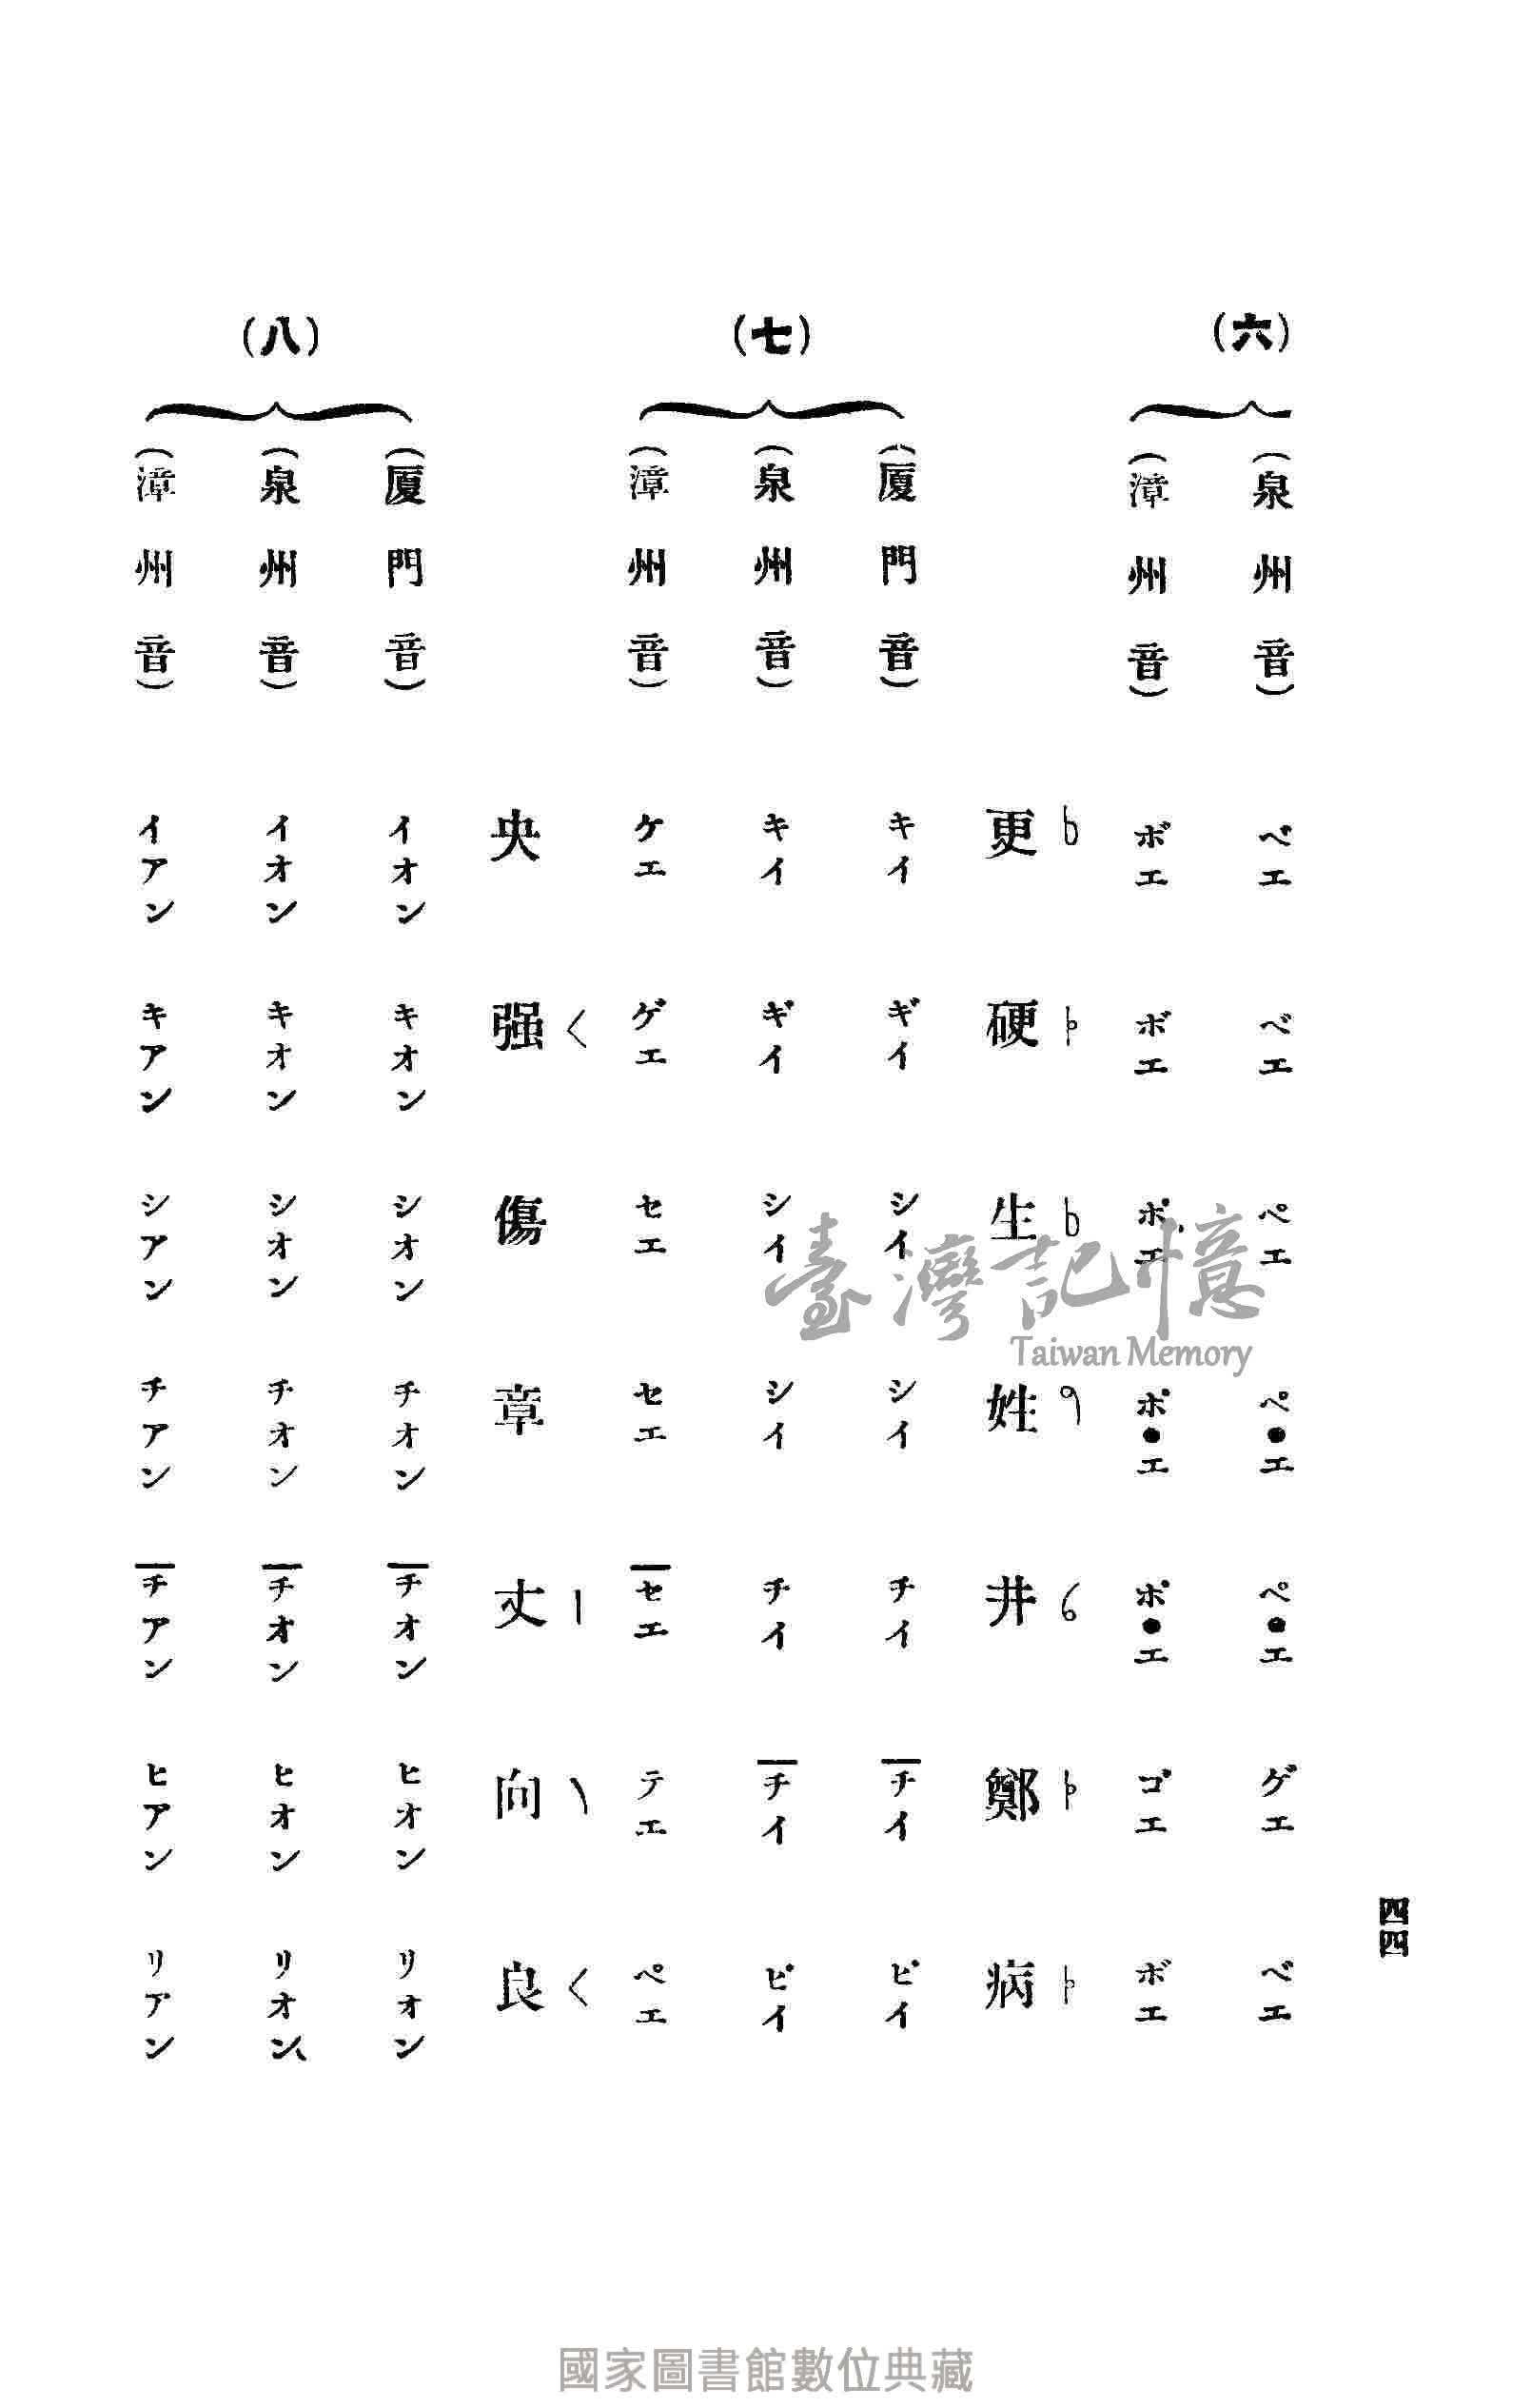 四四
(六)
(泉州音) ベエ ベエ ペエ ペ●エ ペ●エ ゲエ ベエ
(漳州音) ボエ ボエ ポエ ポ●エ ポ●エ ゴエ ボエ
更 硬 生 姓 井 鄭 病
(七)
(厦門音) キイ ギイ シイ シイ チイ チイ ピイ
(泉州音) キイ ギイ シイ シイ チイ チイ ピイ
(漳州音) ケエ ゲエ セエ セエ セエ テエ ペエ
央 强 傷 章 丈 向 良
(八)
(厦門音) イオン キオン シオン チオン チオン ヒオン リオン
(泉州音) イオン キオン シオン チオン チオン ヒオン リオン
(漳州音) イアン キアン シアン チアン チアン ヒアン リアン
臺灣記憶
Taiwan Memory
國家圖書館數位典藏